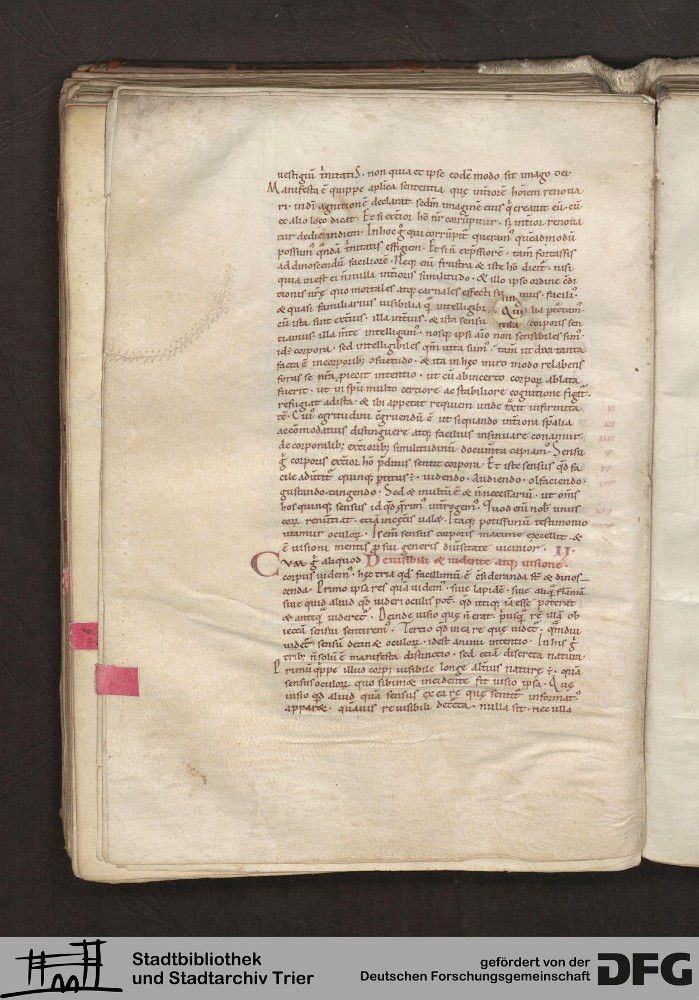 uestigiū t̄nitatiS · non quia et ipse codē modo sit imago dei ·
Manifesta ē quippe aplīca sententia que int̄iorē hoīem renoua
ri · indī agnitionē declarat sedm̄ imaginē eius q̄ creauit eū · cū
et alio loco dicat · Et si ext̄ior hō nr̄ corrūpitur · s; int̄ior renoua
tur dedie indiem · In hoc ḡ qui corrūpit̄ queram' quēadmodū
possum' qndā t̄nitatis effigiem · Et si n̄ exp̄ssiorē · tam̄ fortassis
ad dinoscendū faciliorē · Neq; enī frustra & iste hō dicit̄ · nisi
quia inest ei n̄nulla int̄ioris similitudo · & illo ipso ordine cōdi
tionis nr̄e quo mortales atq; carnales effecti sumus · facili'
& quasi familiarius uisibilia q̄ intelligibilia p̄tractam'
cū ista sint ext̄ius · illa int̄ius · & ista sensu corporis sen
tiamus · illa m̄te intelligam' · nosq; ipsi aīo non sensibiles sim'
id · corpora · sed intelligibiles qm̄ uita sum' · tam̄ ut dixi tanta
facta ē incorporib; ɔsuetudo · & ita in hęc miro modo relabens
foras se nr̄a p̄iecit intentio · ut cū abincerto corporꝝ ablata
fuerit · ut in sp̄m multo certiore ac stabiliore cognitione figat̄ ·
refugiat ad ista · & ibi appetat requiem unde t̄xit infirmita
tē · Cui' egritudini ɔgruendū ē ut siquando int̄iora sp̄alia
accōmodatius distinguere atq; facilius insinuare conamur
de corporalib; ext̄iorib; similitudinū documīta capiam' Sensu
ḡ corporis ext̄ior hō p̄ditus sentit corpora · Et iste sensus qd̄ fa
cile aduītit̄ quinq; ptitus ÷ · uidendo · Audiendo · olfaciendo ·
gustando · tangendo · Sed & multū ē & n̄ necessariū · ut om̄s
hos quinq; sensus id qd̄ q̄rim' int̄rogem' · Quod enī nob̄ unus
eoꝝ renūtiat · etiā inceteris ualet · Itaq; potissimū testimonio
utamur oculoꝝ · Is enī sensus corporis maxime excellit · &
ē uisioni mentis p sui generis diūsitate uicinior · II ·
Cum ḡ aliquod De uisibili & uidente atq; uisione ·
corpus uidem' · hęc tria qd̄ facillimū ē ɔsideranda st̄ & dinos
cenda · Primo ipsa res quā uidem' · siue lapidē · siue aliq̄ flāmā
siue quid aliud qd̄ uideri oculis pot̄ · qd̄ utiq; iā esse poterat
& antiq̄ uideret̄ · Deinde uisio que n̄ erat p̄usq̄ rē illā ob
iectā sensui sentirem' · Tercio qd̄ in ea re que uidet̄ · qm̄diu
uidet̄ sensū detinet oculoꝝ · idest animi intentio · In his ḡ
trib; n̄ solū ē manifesta distinctio · sed etiā discreta natura ·
Primū q̄ppe illud corp' uisibile longe alti' nature ÷ · quā
sensus oculoꝝ quo sibimet incidente fit uisio ipsa · Que
uisio qd̄ aliud quā sensus ex ea re que sentit̄ informat'
apparet · quāuis re uisibili detc̄ta · nulla sit · nec ulla
Stadtbibliothek
und Stadtarchiv Trier
gefördert von der
Deutschen Forschungsgemeinschaft
DFG